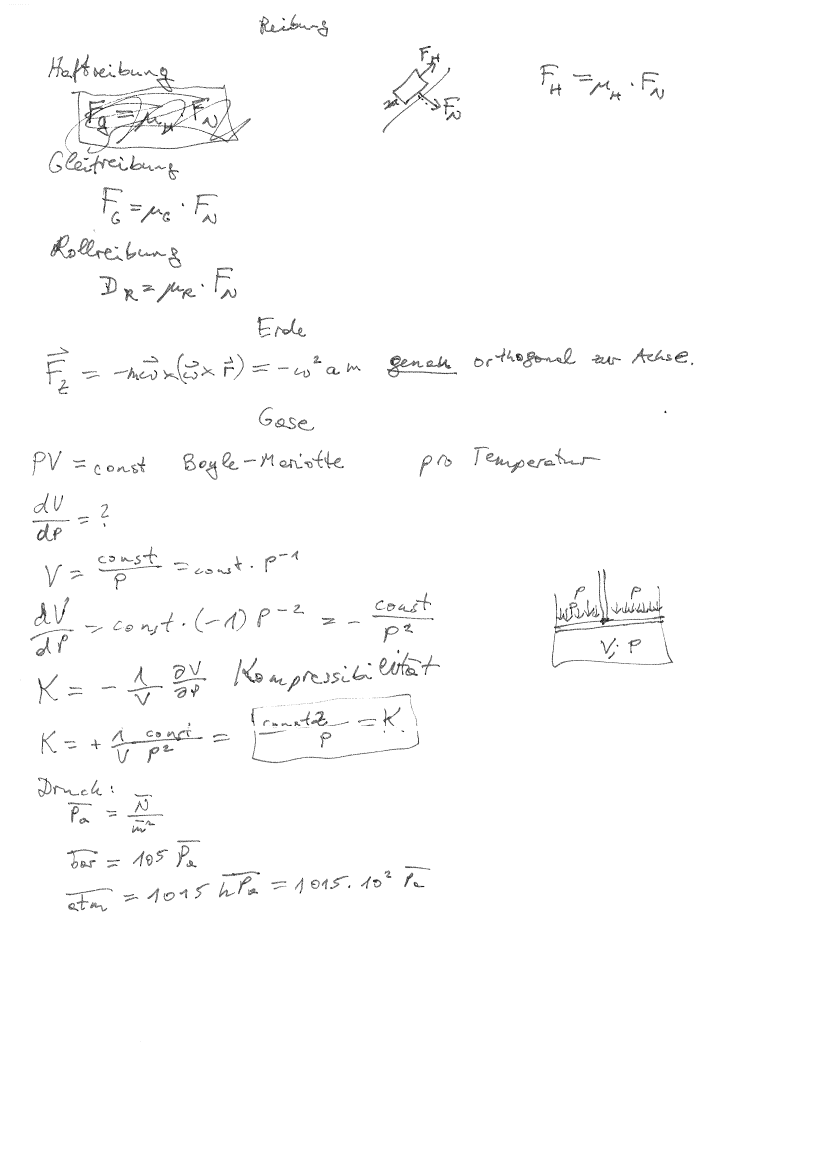 Reibung
Haftreibung
F_H = μ_H · F_N
F_H
F_N
m
Gleitreibung
F_G = μ_G · F_N
Rollreibung
D_R = μ_R · F_N
Erde
F⃗_Z = -mω⃗×(ω⃗× r⃗) = -ω² a m genau orthogonal zur Achse.
Gase
PV = const Boyle-Mariotte pro Temperatur
dV/dP = ?
V = const/P = const · P⁻¹
dV/dP = const · (-1) P⁻² = - const/P²
P P P
V, P
K = - 1/V ∂V/∂P Kompressibilität
K = + 1/V const/P² =
/P = K
Druck:
Pa = N/m²
bar = 10⁵ Pa
atm = 1015 hPa = 1015 · 10² Pa